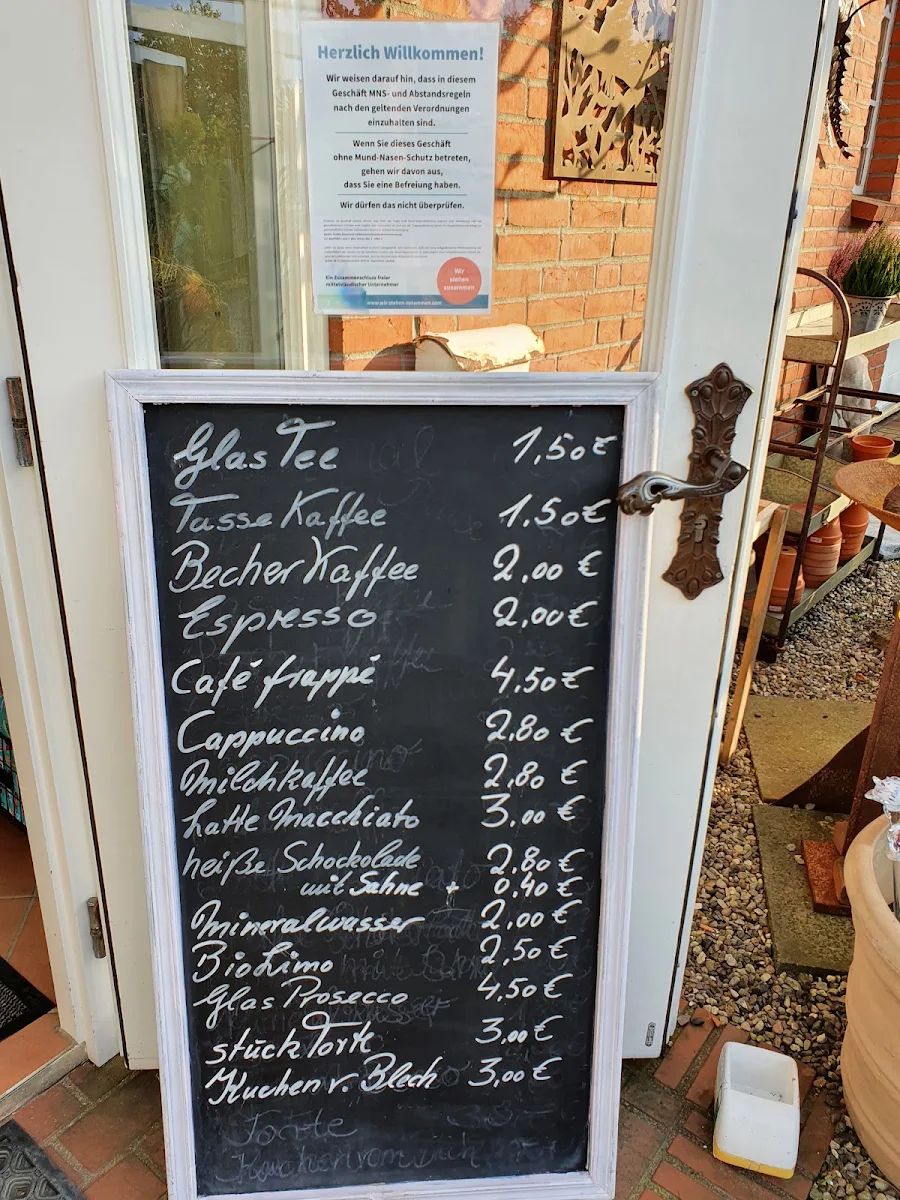 Herzlich Willkommen!
Wir weisen darauf hin, dass in diesem
Geschäft MNS- und Abstandsregeln
nach den geltenden Verordnungen
einzuhalten sind.
Wenn Sie dieses Geschäft
ohne Mund-Nasen-Schutz betreten,
gehen wir davon aus,
dass Sie eine Befreiung haben.
Wir dürfen das nicht überprüfen.
Ein Zusammenschluss freier
mittelständischer Unternehmer
Wir
stehen
zusammen
www.wir-stehen-zusammen.com
Glas Tee 1,50€
Tasse Kaffee 1.50€
Becher Kaffee 2,00 €
Espresso 2,00€
Café frappé 4,50€
Cappuccino 2,80 €
Milchkaffee 2,80 €
Latte Macchiato 3,00 €
heiße Schockolade 2,80 €
mit Sahne + 0,40 €
Mineralwasser 2,00 €
Bio Limo 2,50 €
Glas Prosecco 4,50 €
stück Torte 3,00 €
Kuchen v. Blech 3,00 €
Torte